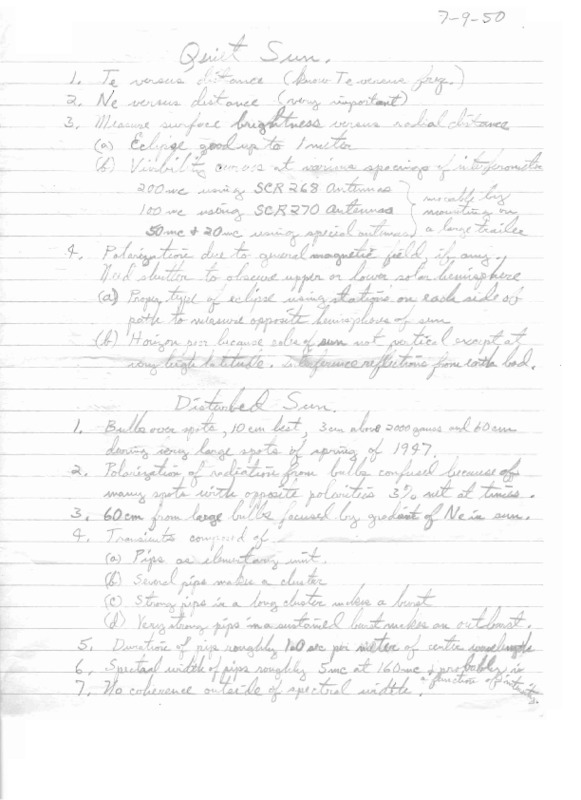 7-9-50
Quiet Sun.
1. Te versus distance (know Te versus freq.)
2. Ne versus distance (very important)
3. Measure surface brightness versus radial distance
(a) Eclipse good up to 1 meter
(b) Visibility curves at various spacings of interferometer
200 mc using SCR 268 Antennas
100 mc using SCR 270 Antennas
50 mc & 20 mc using special antennas
movable by
mounting on
a large trailer
4. Polarization due to general magnetic field, if any.
Need shutter to observe upper or lower solar hemisphere
(a) Proper type of eclipse using stations on each side of
path to measure opposite hemispheres of sun
(b) Horizon poor because poles of sun not vertical except at
very high latitude. Interference reflections from earth bad.
Disturbed Sun.
1. Bulbs over spots, 10 cm best, 3 cm above 2000 gauss and 60 cm
during very large spots of spring of 1947.
2. Polarization of radiation from bulbs confused because of
many spots with opposite polarities 3% net at times.
3. 60 cm from large bulbs focused by gradient of Ne in sun.
4. Transients composed of
(a) Pips as elementary unit.
(b) Several pips makes a cluster
(c) Strong pips in a long cluster makes a burst
(d) Very strong pips in a sustained burst makes an outburst.
5. Duration of pips roughly sec per meter of center wavelength
6. Spectral width of pips roughly 5 mc at 160 mc & probably is
a function of intensity.
7. No coherence outside of spectral width.